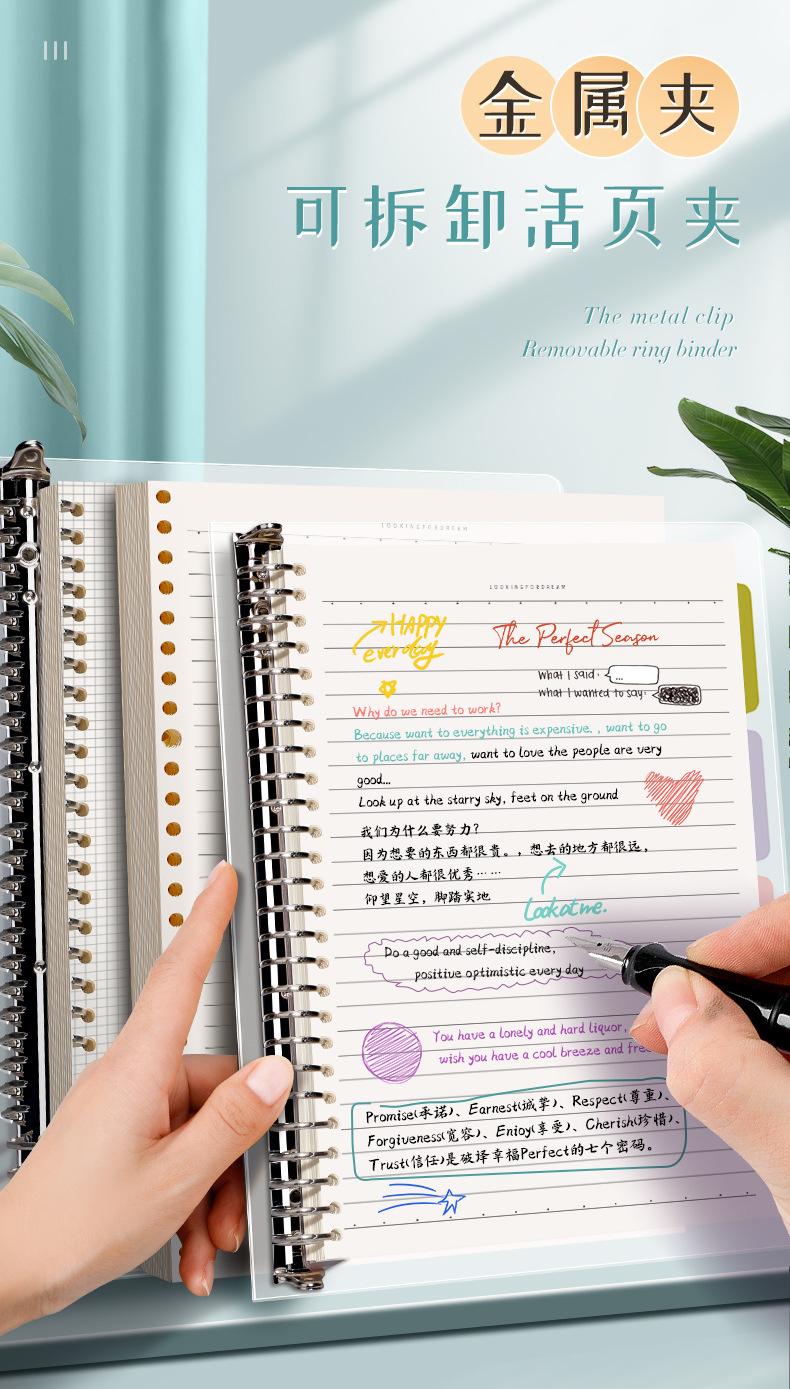 金属夹
可拆卸活页夹
The metal clip
Removable ring binder
LOOKINGFORDREAM
LOOKINGFORDREAM
HAPPY
everday
The Perfect Season
What I said:
...
What I wanted to say:
Why do we need to work?
Because want to everything is expensive. , want to go
to places far away, want to love the people are very
good...
Look up at the starry sky, feet on the ground
我们为什么要努力?
因为想要的东西都很贵。, 想去的地方都很远,
想爱的人都很优秀……
仰望星空, 脚踏实地
Look at me.
Do a good and self-discipline,
positive optimistic every day
You have a lonely and hard liquor,
wish you have a cool breeze and
Promise(承诺)、Earnest(诚挚)、Respect(尊重)、
Forgiveness(宽容)、Enioy(享受)、Cherish(珍惜)、
Trust(信任)是破译幸福Perfect的七个密码。